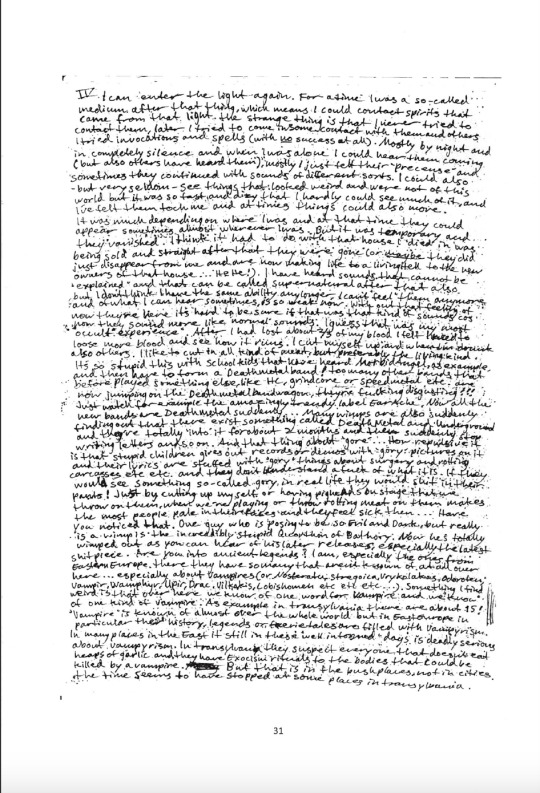 IV I can enter the light again. For a time I was a so-called
medium after that thing, which means I could contact spirits that
came from that light. The strange thing is that I never tried to
contact them, later I tried to come in some contact with them and others
I tried invocations and spells (with no success at all). Mostly by night and
in completely silence and when I was alone I could hear them coming
(but also others have heard them), mostly I just felt their "precense" and
sometimes they continued with sounds of different sorts. I could also
- but very seldom - see things that looked weird and were not of this
world but it was so fast and dizzy that I hardly could see much of it, and
I've felt them touch me and at times things could also move.
It was much depending on where I was and at that time they could
appear sometimes almost wherever I was. But it was temporary and
they vanished. I think it had to do with that house I "died" in was
being sold and straight after that they were gone (or maybe they did
just disappear from me and are now making life to a living hell to the new
owners of that house... HeHe!). I have heard sounds that cannot be
"explained" and that can be called supernatural after that also,
but I don't think I have the same ability any longer, I can't feel them anymore
and of what I can hear sometimes, is so weak now, with out that feeling of
now they're here it's hard to be sure if that was that kind of sounds cos
now they sound more like normal sounds. I guess that was my most
"occult" experience. After I had lost about 2/3 of my blood I felt I had to
loose more blood and see how it runs. I cut myself up and when I'm drunk
also others. I like to cut in all kind of meat, but preferably the living kind.
Its so stupid this with school kids that have heard Morbid Angel, as example,
and then have to form a Deathmetal band & too many other bands that
before played something else, like HC, grindcore or speedmetal etc. are
now jumping on the Deathmetal bandwagon, they're fucking disgusting!!!
Just watch for example the amazingly trendy label Earache. Now all the
new bands are Deathmetal suddenly... Many wimps are also suddenly
finding out that there exist something called Death Metal and Underground
and they're totally "into" it for about 2 months and then suddenly stop
writing letters and so on. And that thing about "gore"... How repulsive it
is that stupid children gives out records or demos with "gory" pictures on it
and their lyrics are stuffed with "gory" things about surgery and rotting
carcasses etc etc. and they don't understand a fuck of what it is. If they
would see something so-called gory, in real life they would shit in their
pants! Just by cutting up myself or having pigheads on stage that we
throw on them, when we're playing or throw rotting meat on them makes
the most people pale in their faces and they feel sick then... Have
you noticed that. One guy who is posing to be so Evil and Dark, but really
is a wimp is the incredibly stupid Quorthon of Bathory. Now he's totally
wimped out as you can hear of his later releases, especially the latest
shit piece. Are you into ancient legends? I am, especially the ones from
Eastern Europe. There they have so many that aren't known of, at all over
here... especially about Vampires (or Nosferatu, Stregoica, Vrykolakas,
Vampir, Wamphyr, Upir, Drac, Vilkakis, Lobishomen etc etc etc...). Something I find
weird is that over here we know of one word for Vampire and we "know"
of one kind of Vampire. As example in transylvania there are about 15!
"Vampire" is known of almost over the whole world but in East Europe in
particular their history, legends or are filled with vampyrism.
In many places in the East it still in these well informed days, is deadly serious
about vampyrism. In transylvania they suspect everyone that doesn't eat
heaps of garlic and they have Exocism rituals to the bodies that could be
killed by a vampire. But that is in the bushplaces, not in cities.
the time seems to have stopped at some places in transylvania.
31